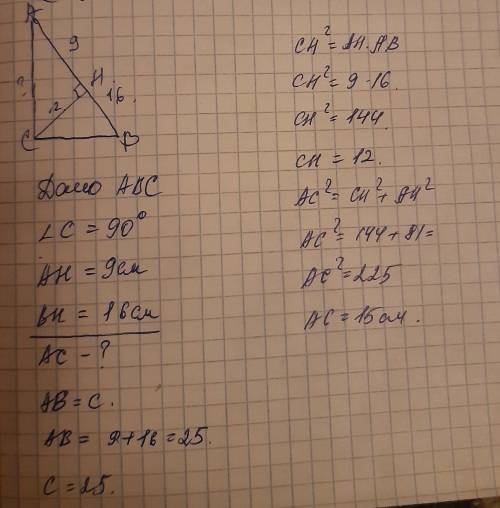 A
9
H.
?
2
16.
C
B
Дано ABC
∠C = 90°
AH = 9см
BH = 16см
AC - ?
AB = C.
AB = 9+16 = 25.
C = 25.
CH² = AH·AB
CH² = 9·16.
CH² = 144.
CH = 12.
AC² = CH² + AH²
AC² = 144 + 81 =
AC² = 225
AC = 15см.